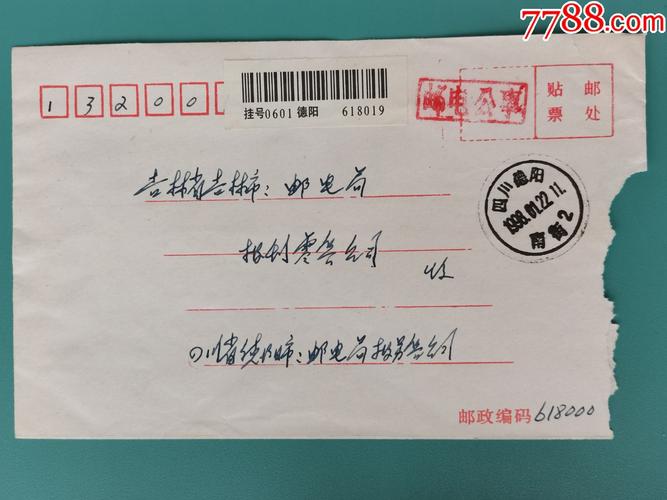 7788.com
中国收藏热线
13200
挂号0601 德阳 618019
邮电公事
贴 邮
票 处
吉林省吉林市：邮电局
报刊零售公司
收
四川德阳
1998.01.22.11.
南街2
四川省德阳市：邮电局报零售公司
邮政编码618000